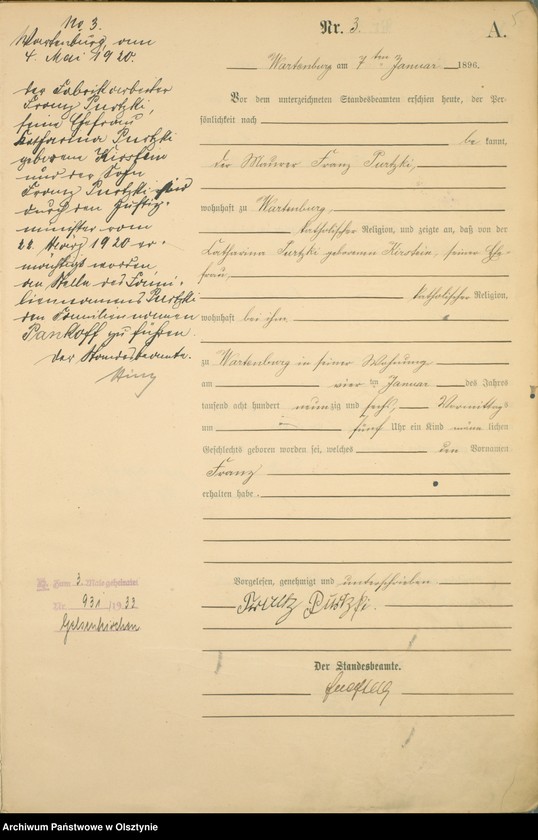 No 3.
Wartenburg, am
4. Mai 1920.
der Fabrikarbeiter
Franz Purtzki,
seine Ehefrau
Katharina Purtzki
geborene Kirstein
und der Sohn
Franz Purtzki sind
durch den Justiz-
minister vom
22. März 1920 er-
mächtigt worden
an Stelle des Fami-
liennamens Purtzki
den Familiennamen
Pankoff zu führen.
Der Standesbeamte.
Nr. 3.
A.
5
Wartenburg am 7ten Januar 1896.
Vor dem unterzeichneten Standesbeamten erschien heute, der Per-
sönlichkeit nach
be kannt,
der Maurer Franz Purtzki,
wohnhaft zu Wartenburg,
katholischer Religion, und zeigte an, daß von der
Katharina Purtzki geborenen Kirstein, seiner Ehe-
frau,
katholischer Religion,
wohnhaft bei ihm
zu Wartenburg in seiner Wohnung
am vier ten Januar des Jahres
tausend acht hundert neunzig und sechs, Vormittags
um fünf Uhr ein Kind männ lichen
Geschlechts geboren worden sei, welches den Vornamen
Franz
erhalten habe.
Vorgelesen, genehmigt und unterschrieben
Franz Purtzki.
Der Standesbeamte.
3. Male geheiratet
Nr. 931 /19 33
Gelsenkirchen
Archiwum Państwowe w Olsztynie